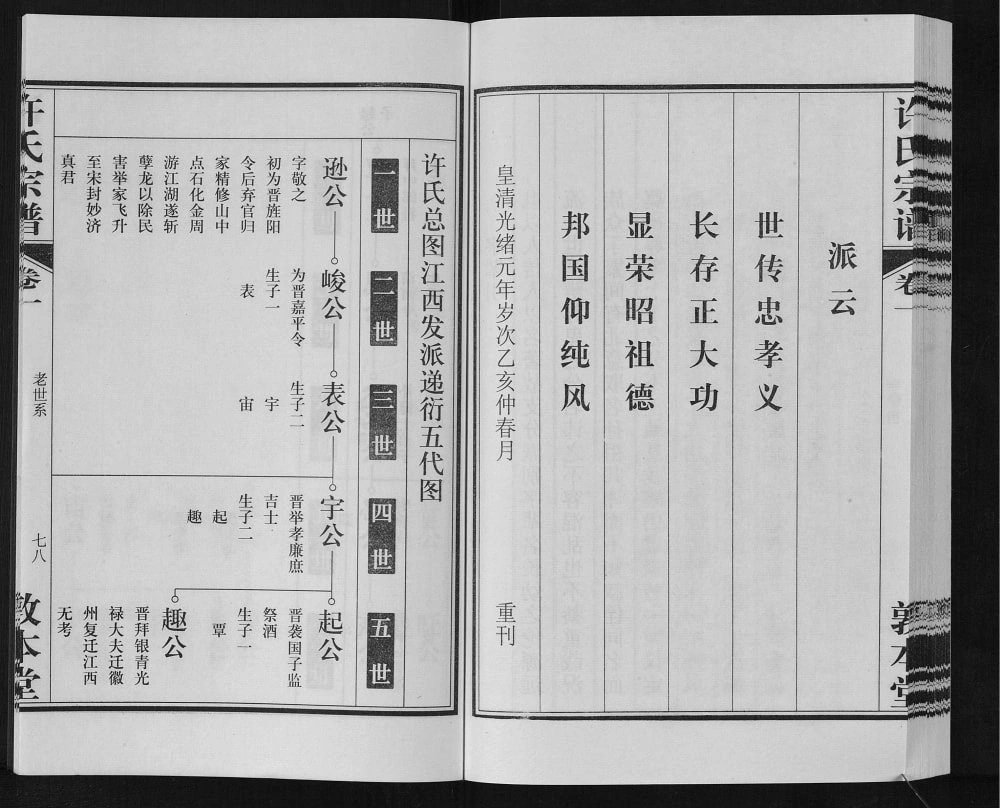 许氏宗谱
卷一
敦本堂
派云
世传忠孝义
长存正大功
显荣昭祖德
邦国仰纯风
皇清光绪元年岁次乙亥仲春月
重刊
许氏总图江西发派递衍五代图
一世
二世
三世
四世
五世
逊公
字敬之
初为晋旌阳
令后弃官归
家精修山中
点石化金周
游江湖遂斩
孽龙以除民
害举家飞升
至宋封妙济
真君
峻公
为晋嘉平令
生子一
表
表公
生子二
宇
宙
宇公
晋举孝廉庶
吉士
生子二
起
趣
起公
晋袭国子监
祭酒
生子一
覃
趣公
晋拜银青光
禄大夫迁徽
州复迁江西
无考
许氏宗谱
卷一
老世系
七八
敦本堂